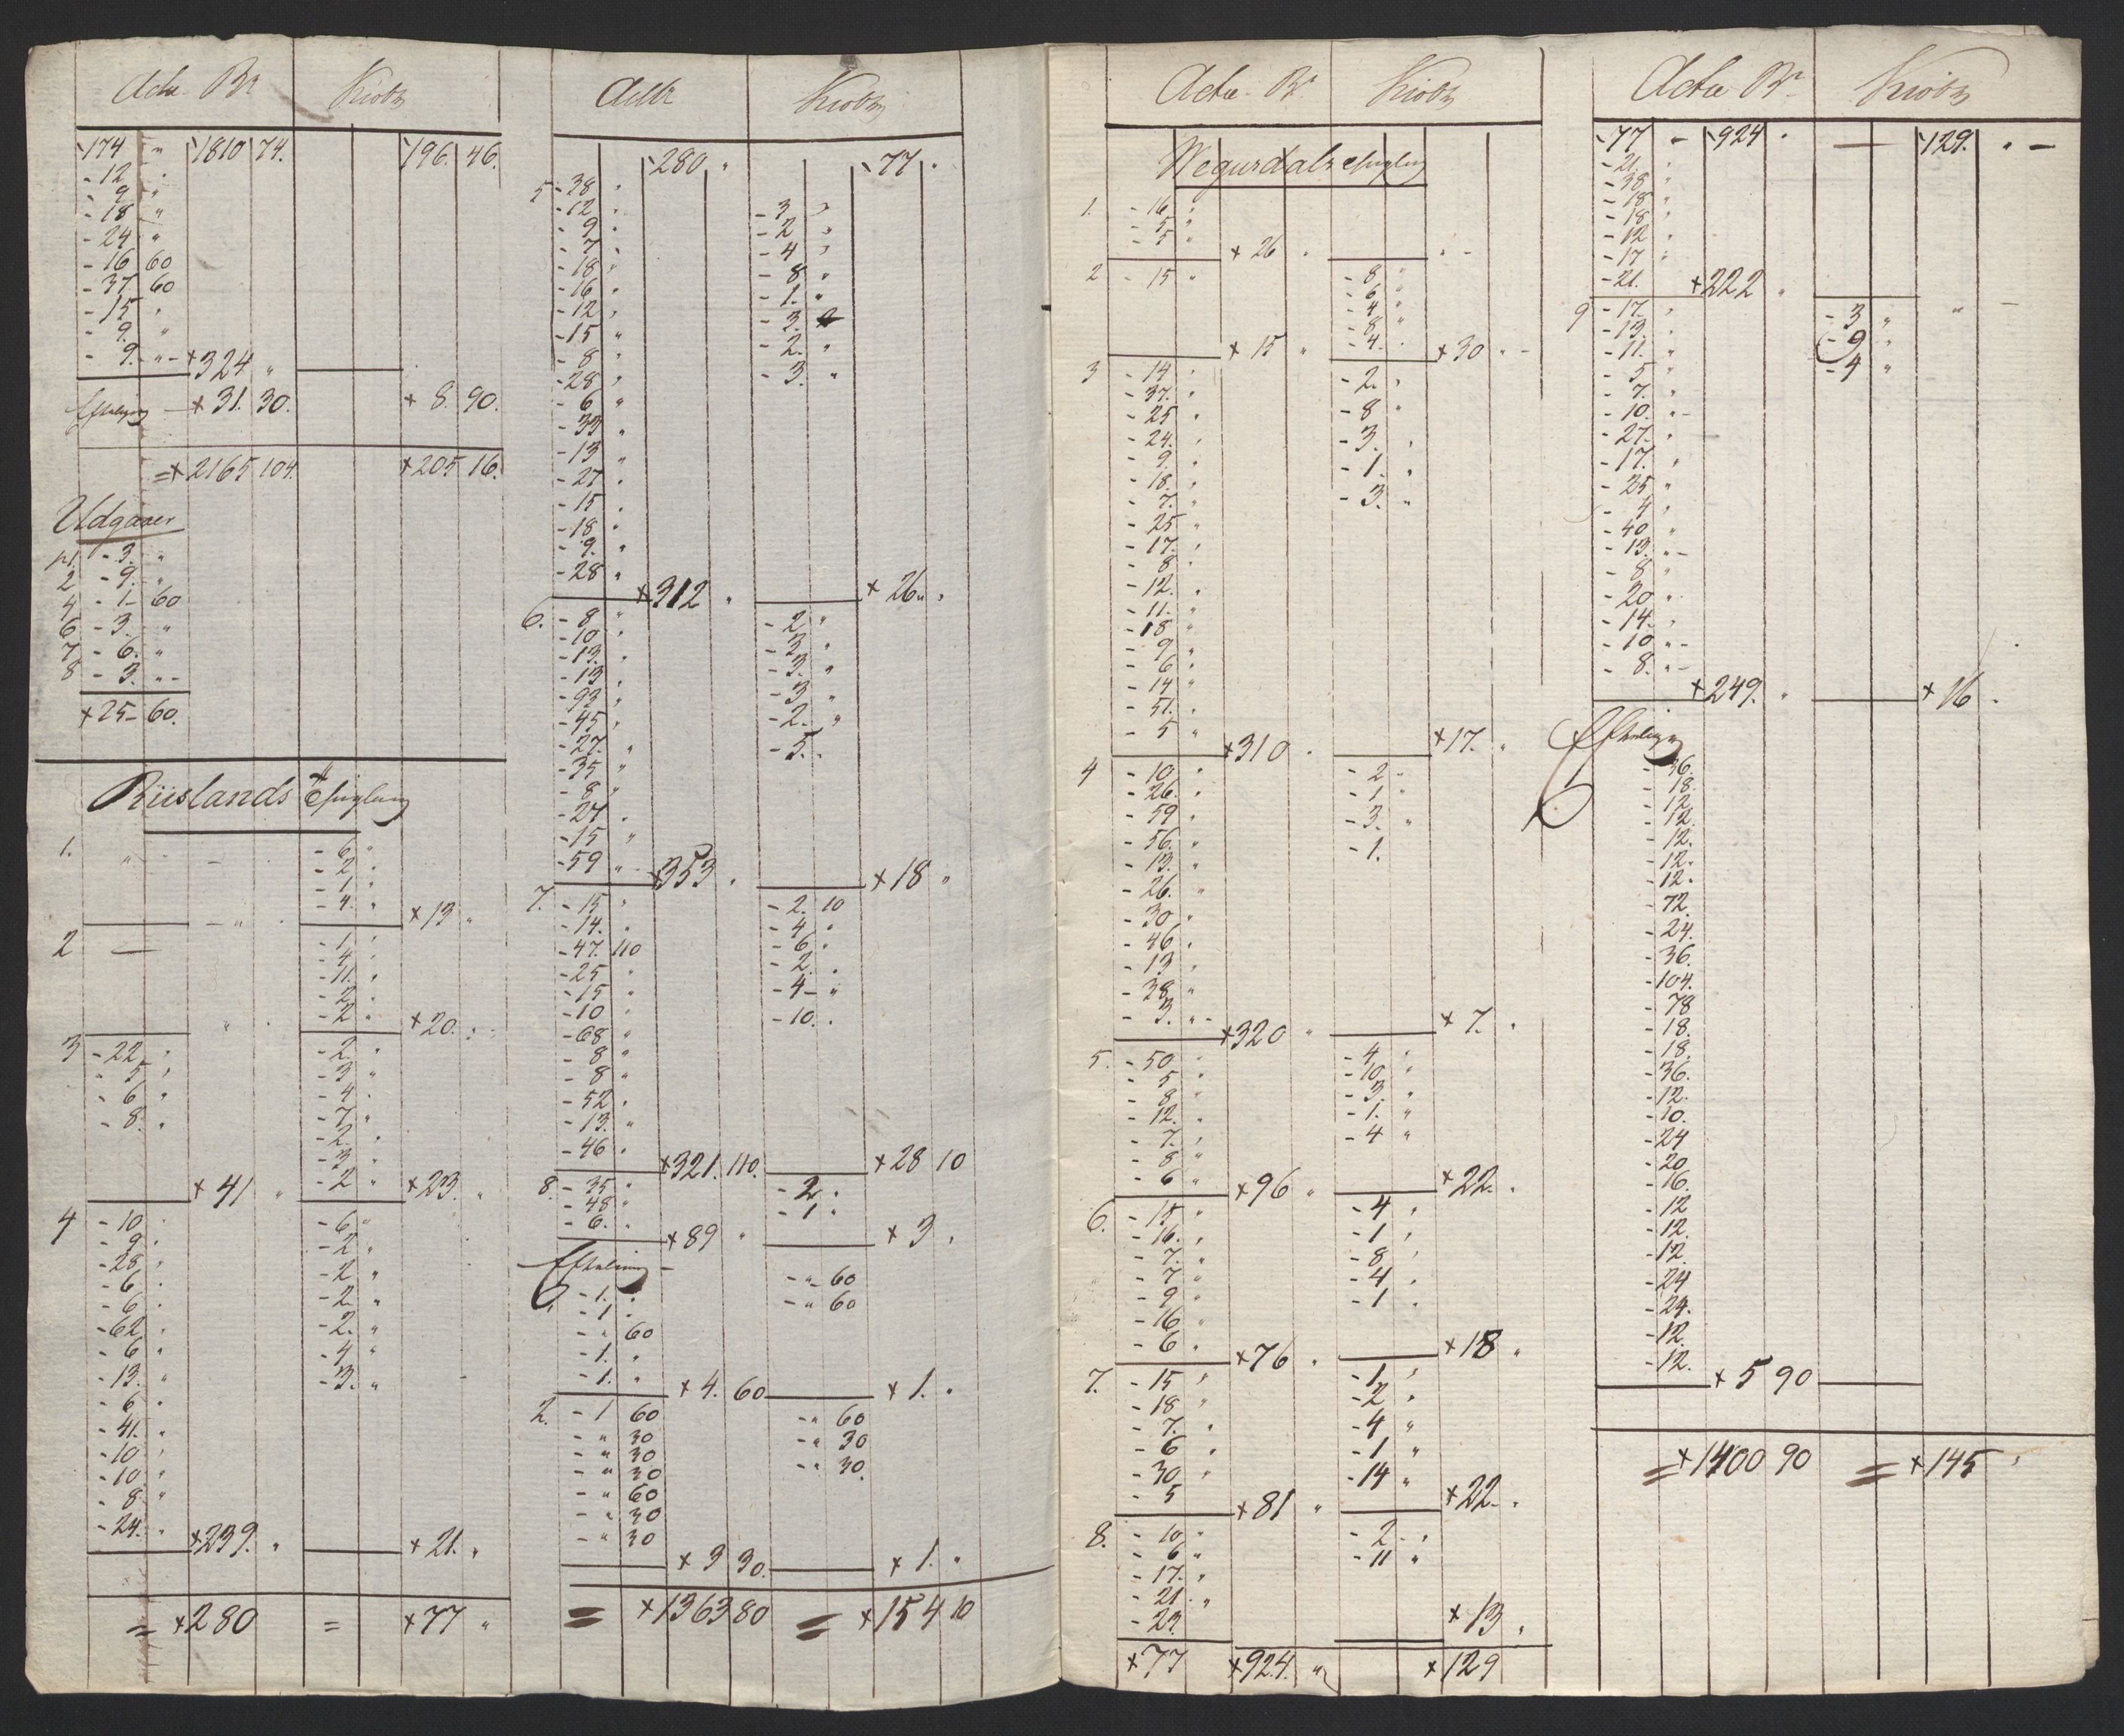 Acta Br
-174 " -1810 74. -196. 46.
-12 "
-9 "
-18 "
-24 "
-16 60
-37 60
-15 "
-9. "
-9. " - +324 "
+31. 30. +8. 90.
=+2165 104. +205 16.
Udgaver
p1. -3. "
2 -9. "
4 -1- 60
6 -3. "
7 -6. "
8 -3. "-
+25- 60.
Riislands
1. " - -6 "
-2 "
-1 "
-4 " +13 "
2 — -1 "
-4 "
-11. "
-2 "
-2 " +20. "
3 -22 " -2 "
-5 " -3 "
-6 " -4 "
-8. " -7 "
-2. "
-3 "
+41 " -2 " +23. "
4 -10 " -6 "
-9 " -2 "
-28 " -2 "
-6 " -2 "
-6 " -2. "
-62 " -4 "
-6 " -3. "
-13. "
-6 "
-41. "
-10 "
-10 "
-8. "
-24. " +239. " +21. "
=+280 = +77 "
-280 " -77 "
5 -38 " -3 "
-12 " -2 "
-9 " -4 "
-7 " -8 "
-18 " -1. "
-16 " -3.
-12 " -2. "
-15 " -3. "
-8 "
-28 "
-6 "
-33 "
-13 "
-27 "
-15 "
-18 "
-9. "
-28 " +312 " +26 "
6. -8 " -2 "
-10 " -3 "
-13. " -3. "
-13 " -3 "
-93 " -2. "
-45 " -5. "
-27. "
-35 "
-8 "
-27 "
-15 "
-59 " +353 " +18 "
7. -15 " -2. 10
-14. " -4 "
-47. 110 -6 "
-25 " -2 "
-15 " -4- "
-10 " -10. "
-68 "
-8 "
-8 "
-52 "
-13. "
-46 " +321. 110. +28 10
8. -35 " -2. "
-48 " -1 "
-6. " +89 " +3 "
-1. " -" 60
-1 " -" 60
-" 60
-1. "
-1. " +4. 60 +1. "
2. -1 60 -" 60
-" 30 -" 30
-" 30 -" 30.
-" 30
-" 60
-" 30
-" 30 +3 30. +1. "
= +1363 80 = +154 10
Acta Br
1. -16 "
-5 "
-5 " +26 "
2 -15 " -8 "
-6 "
-4 "
-8 "
+15 " -4. " +30 "
3 -14 " -2. "
-37. " -8 "
-25 " -3. "
-24. " -1. "
-9. " -3. "
-18. "
-7. "
-25 "
-17. "
-8 "
-12. "
-11. "
-18 "
-9 "
-6 "
-14 "
-51. "
-5 " +310 " +17. "
4 -10 " -2 "
-26. " -1 "
-59 " -3. "
-56. " -1.
-13. "
-26. "
-30 "
-46 "
-13 "
-38 "
-3. " +320 " +7. "
5. -50 " -4 "
-5 " -10 "
-8 " -3. "
-12. " -1. "
-7. " -4 "
-8 "
-6 " +96 " +22. "
6. -15 " -4 "
-16. " -1 "
-7. " -8 "
-7 " -4 "
-9 " -1 "
-16 "
-6 " +76 " +18 "
7. -15 " -1 "
-18 " -2 "
-7. " -4 "
-6 " -1 "
-30 " -14 "
-5 +81 " +22. "
8. -10 " -2 "
-6 " -11 "
-17. "
-21. "
-23. +13 "
+77 +924. " +129
Acta Br
-77 - -924 " — -129. " -
-21. "
-38 "
-18 "
-18 "
-12 "
-17 "
-21. +222 "
9 -17. " -3 " "
-13. " -9 "
-11. " -4 "
-5 "
-7. "
-10. "
-27. "
-17. "
-25 "
-4 "
-40 "
-13. "
-8 "
-20 "
-14. "
-10 "
-8. " +249. " +16 "
-36.
-18.
-12.
-12.
-12.
-12.
-12.
-72.
-24.
-36.
-104.
-78
-18.
-18.
-36.
-12.
-10.
-24
-20
-16.
-12
-12.
-12.
-24
-24.
-12.
-12. +5 90
=+1400 90 =+145 "